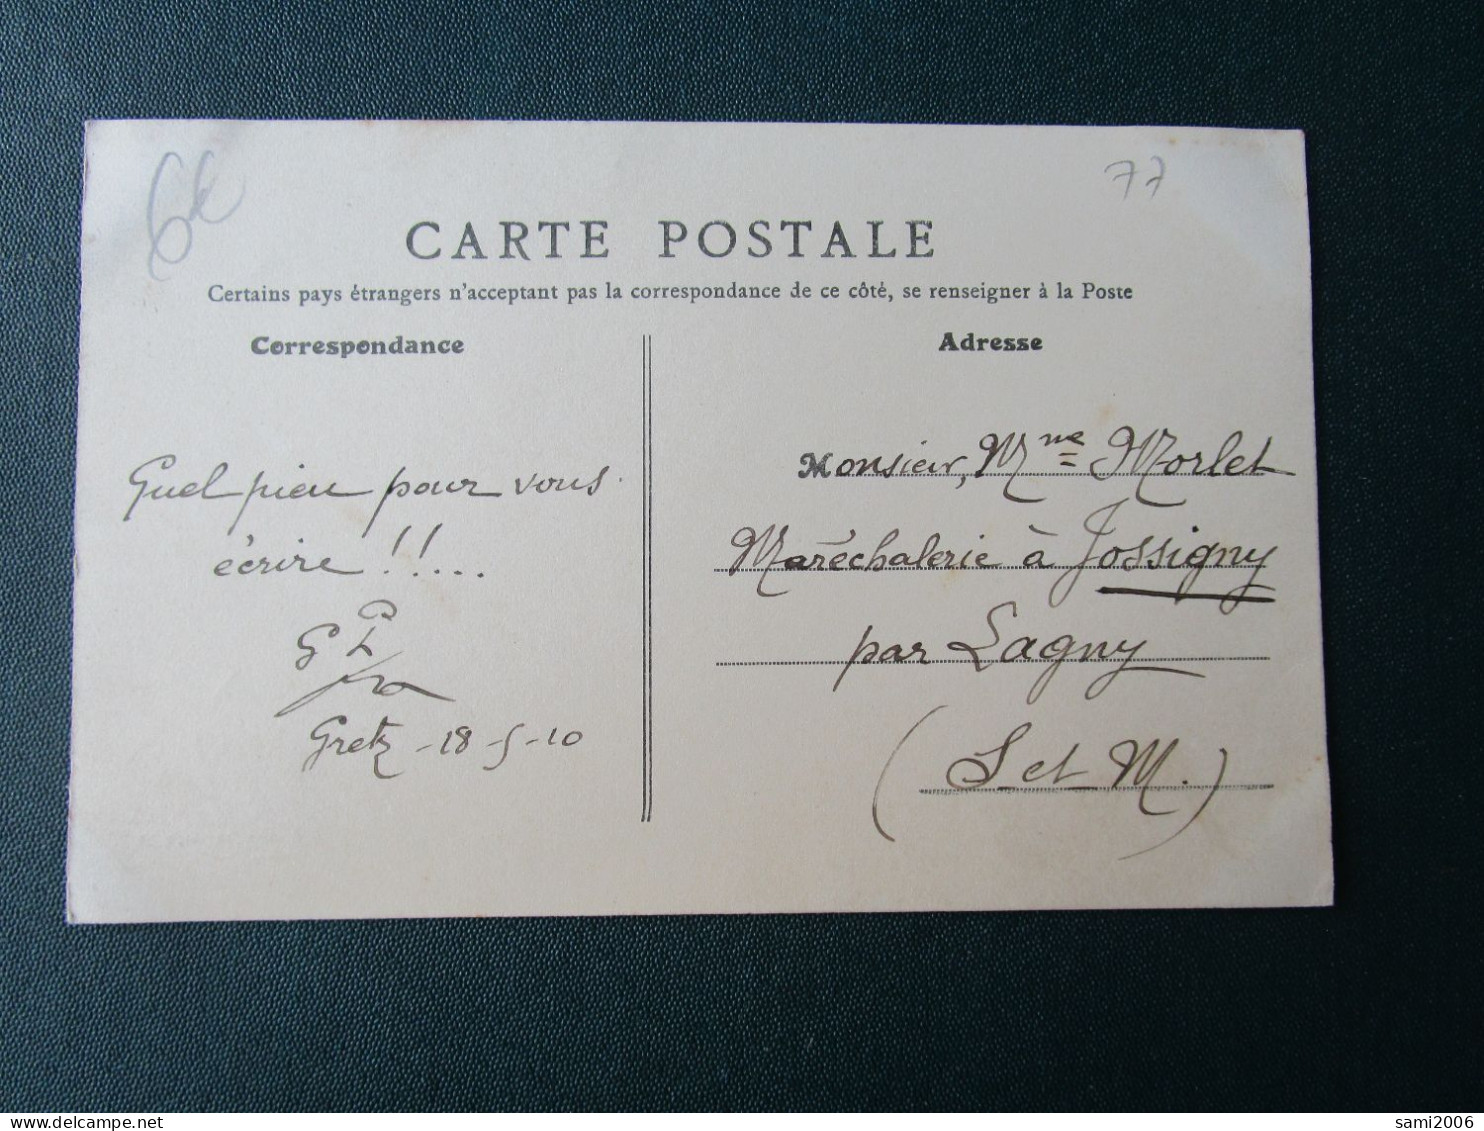 6€
77
CARTE POSTALE
Certains pays étrangers n'acceptant pas la correspondance de ce côté, se renseigner à la Poste
Correspondance
Quel pieu pour vous
écrire !!....
GP
Gretz - 18 - 5 - 10
Adresse
Monsieur, Mme Morlet
Maréchalerie à Jossigny
par Lagny
(S et M.)
www.delcampe.net
sami2006